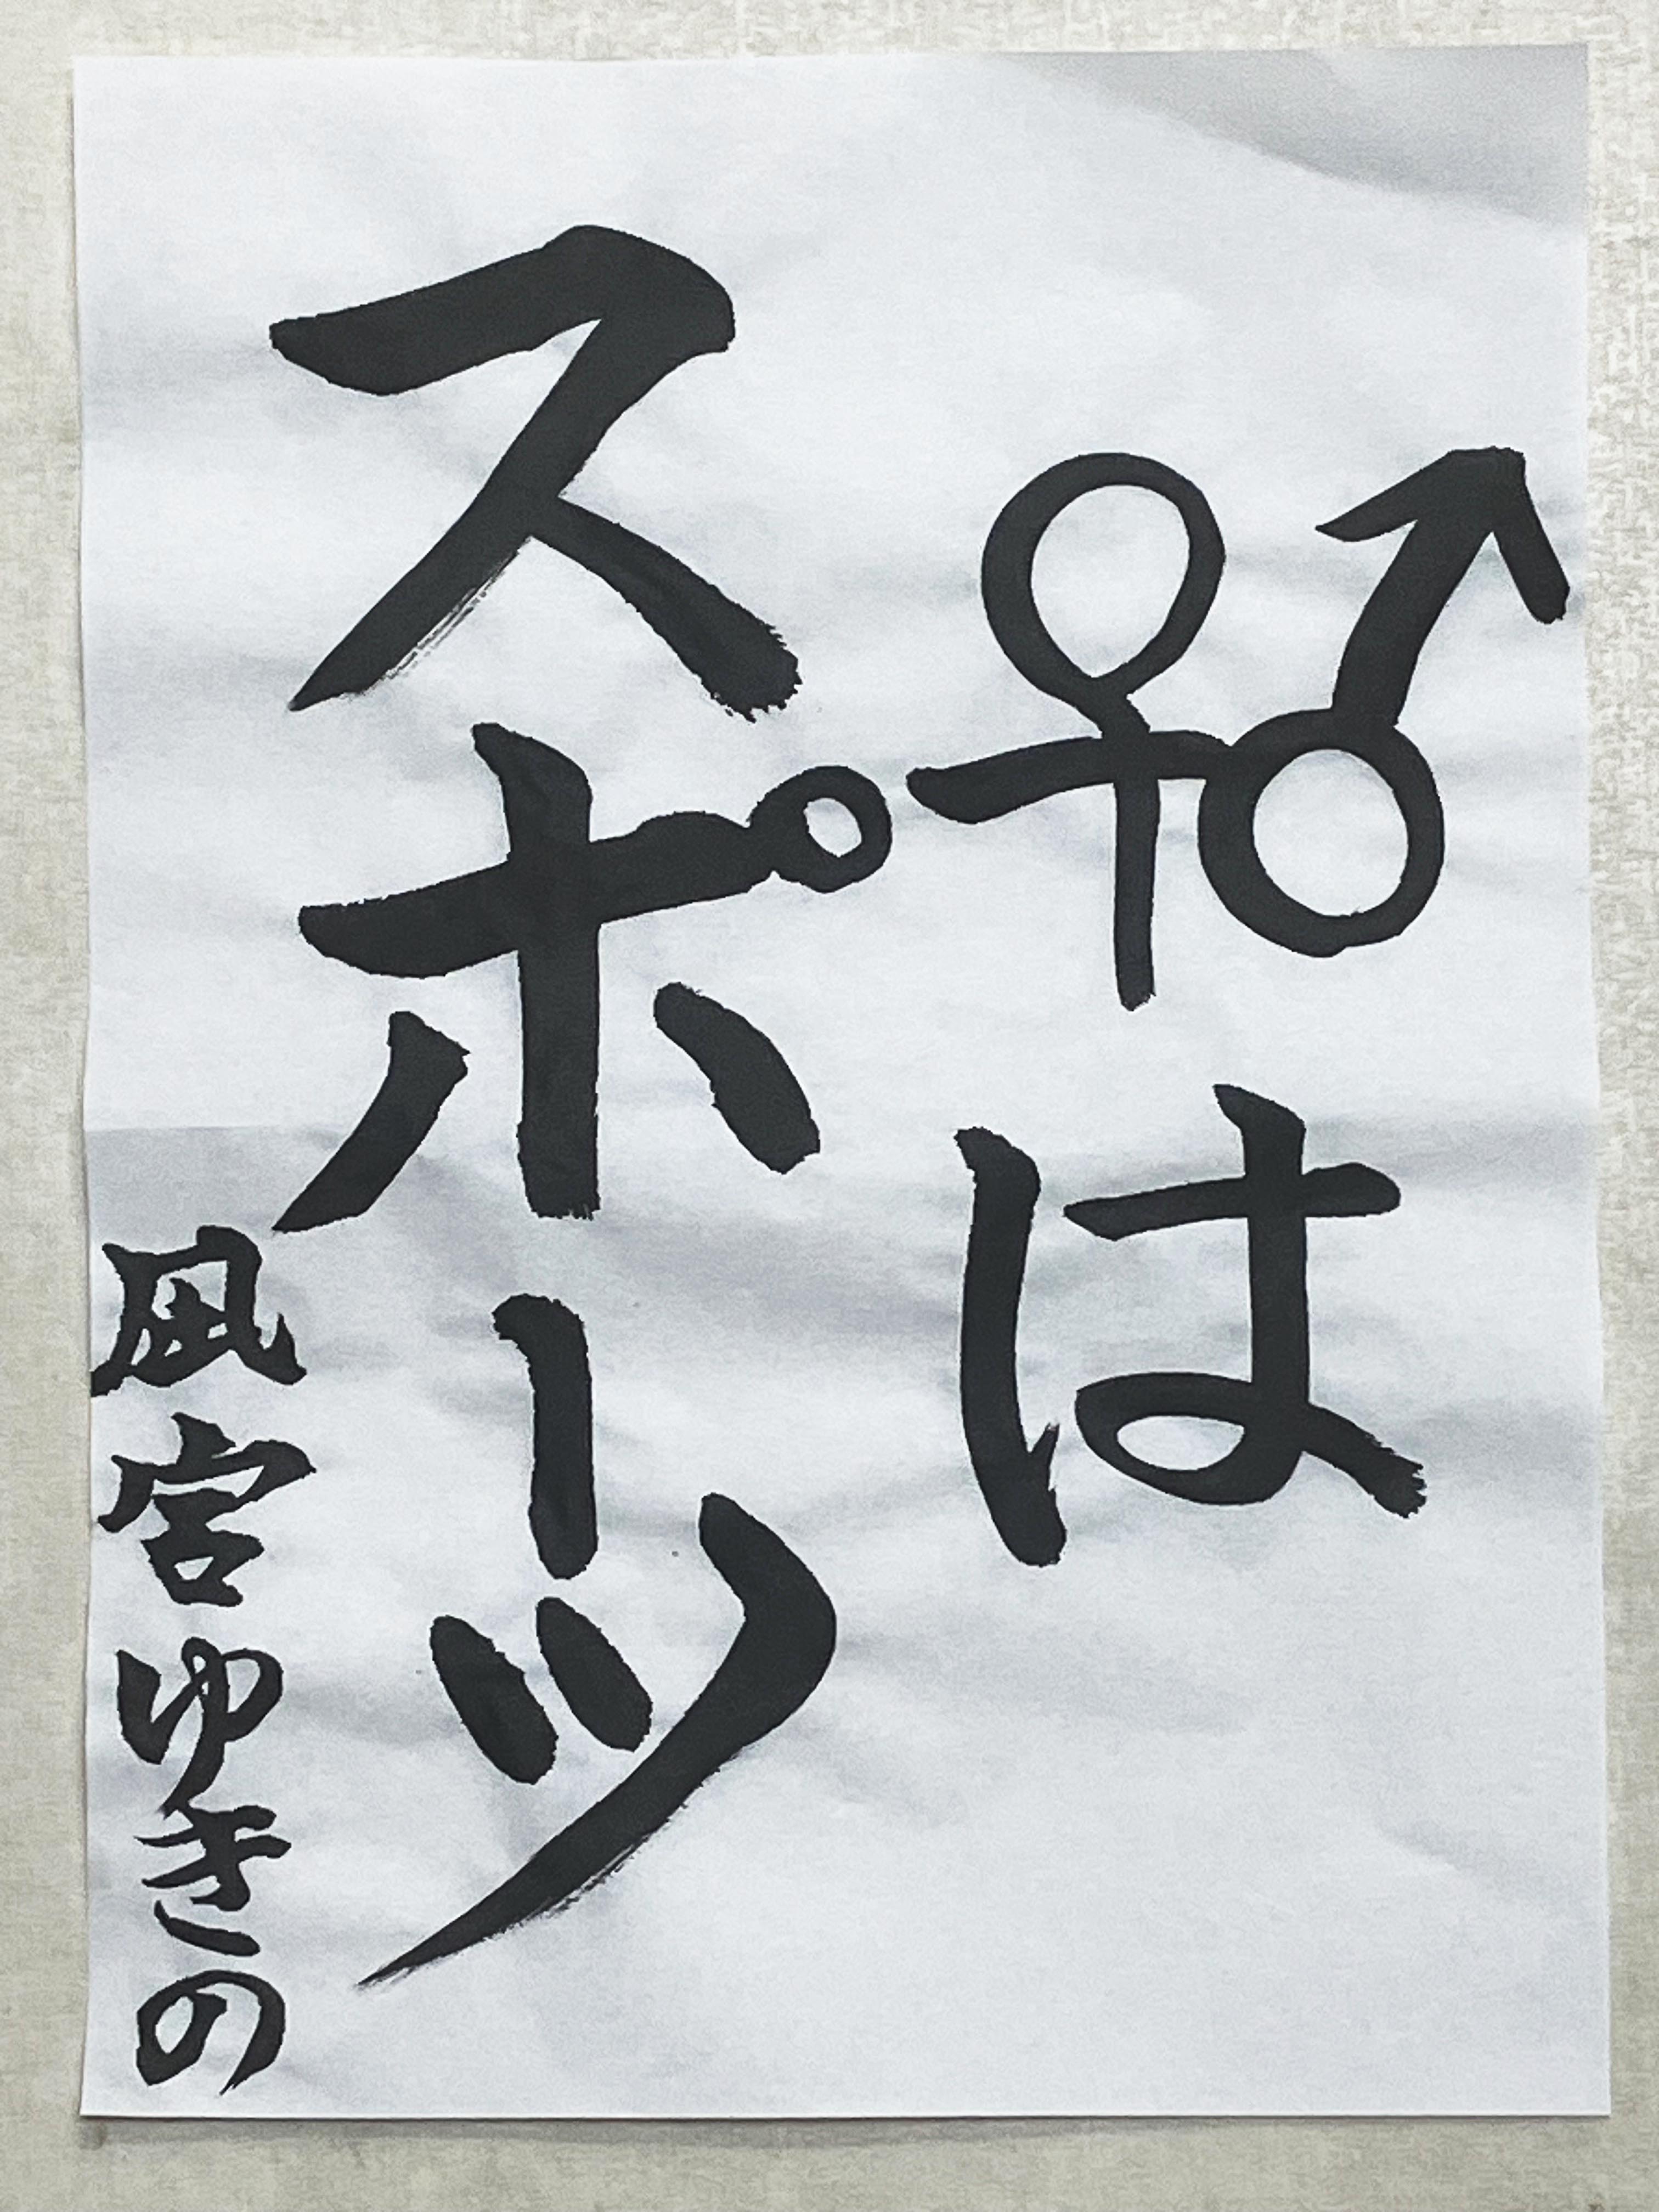 ♂♀は
スポーツ
凰宮ゆきの